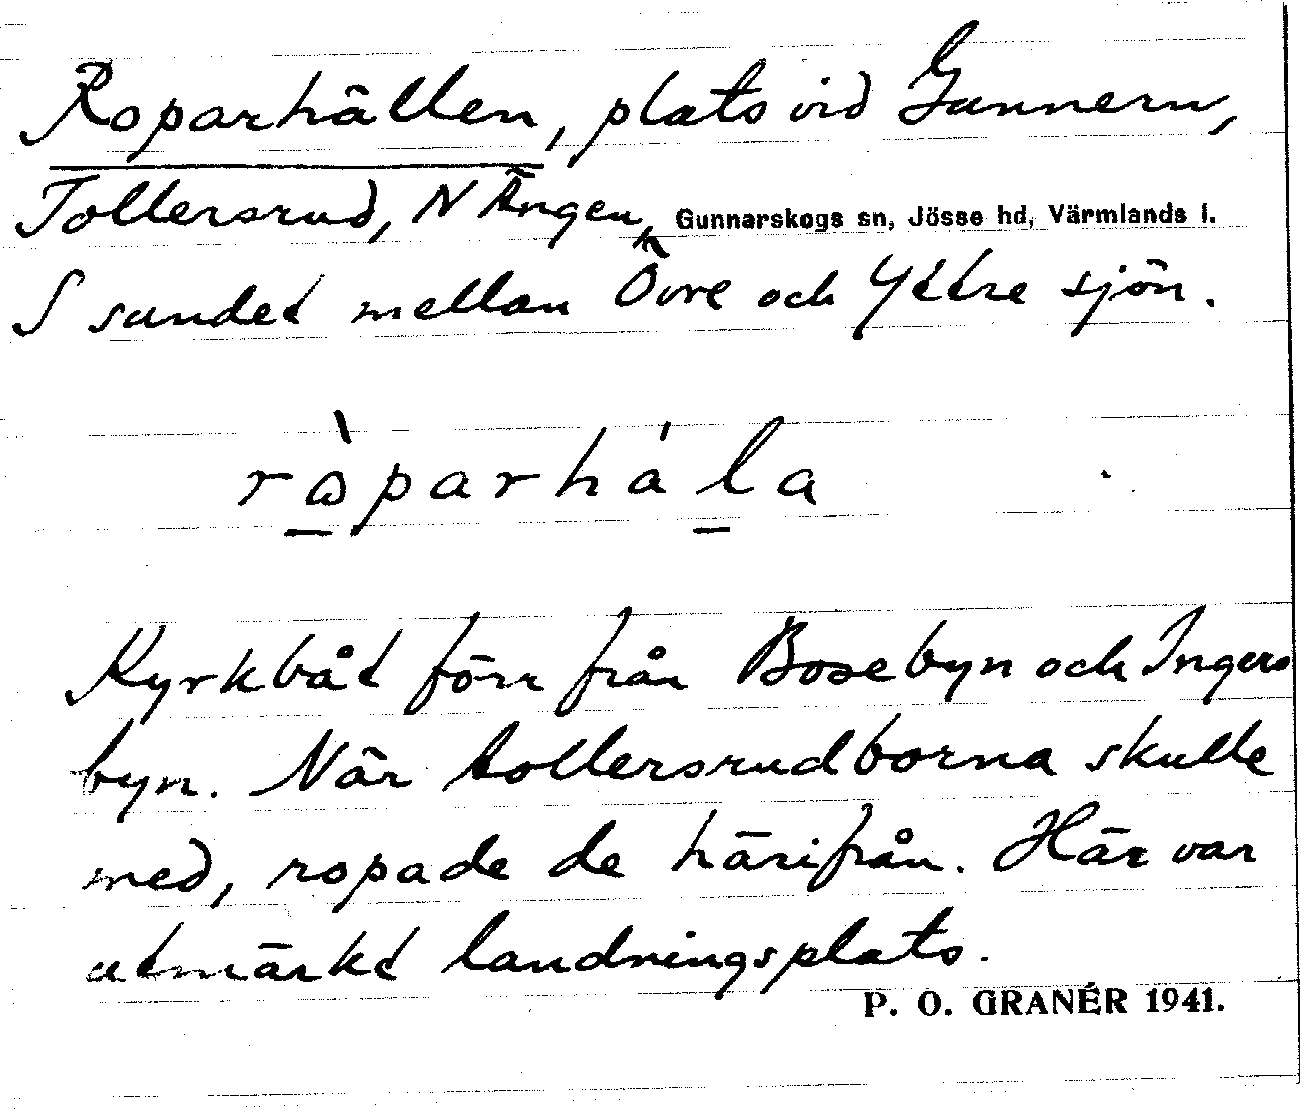 Roparhällen, plats vid Gunnern,
Tollersrud, N Ängen, Gunnarskogs sn, Jösse hd, Värmlands l.
I sundet mellan Övre och Yttre sjön.
ròparhála
Kyrkbåt förr från Bosebyn och Ingers
byn. När tollersrudborna skulle
med, ropade de härifrån. Här var
utmärkt landningsplats.
P. O. GRANÉR 1941.